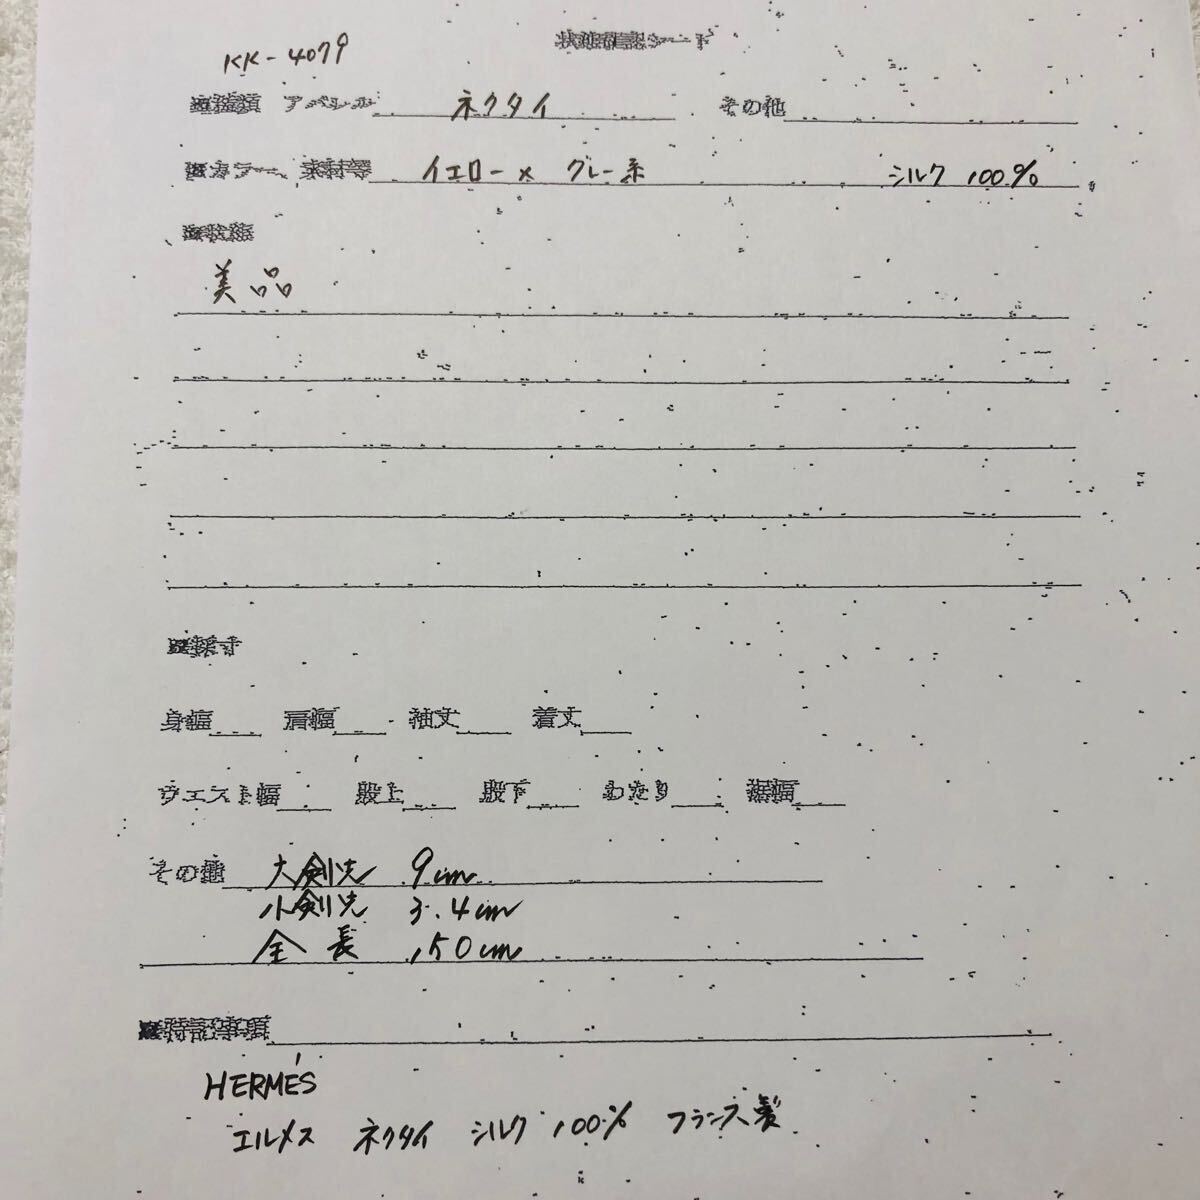 KK-4079
状態確認シート
■種類 アパレル ネクタイ その他
■カラー、素材等 イエロー× グレー系 シルク 100%
■状態
美品
■採寸
身幅 肩幅 袖丈 着丈
ウエスト幅 股上 股下 わたり 裾幅
その他 大剣先 9cm
小剣先 3.4cm
全長 150cm
■特記事項
HERMÉS
エルメス ネクタイ シルク 100% フランス製